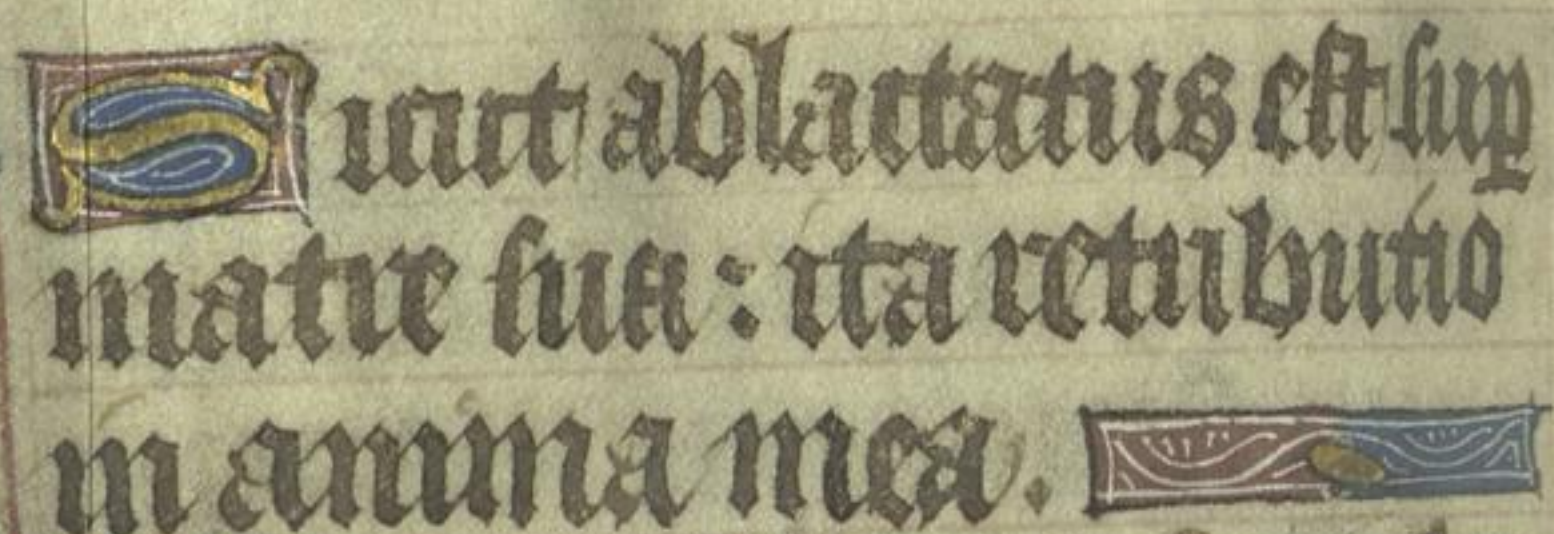 Sicut ablactatus est suꝑ
matre sua : ita retributio
in anima mea .